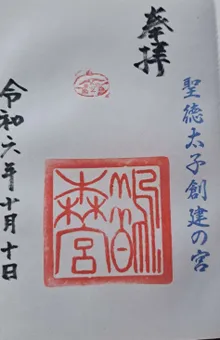 聖徳太子創建の宮
奉拝
鵲
森宮
令和六年十月十日